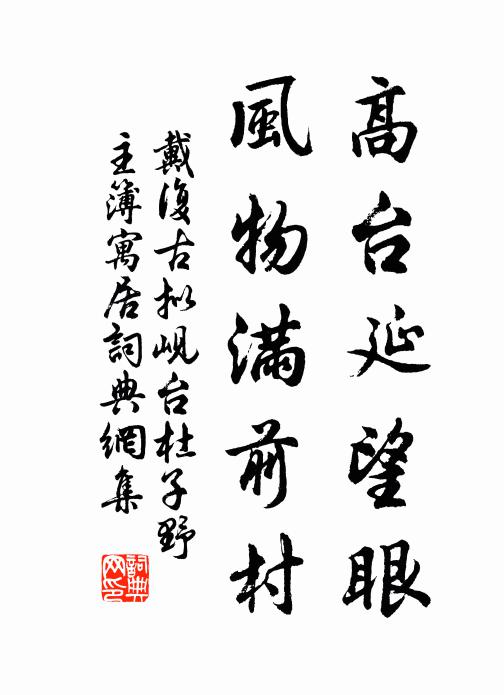 高台延望眼
風物滿前村
戴復古拟峴台杜子野
主簿寓居詞典網集
詞典
网印